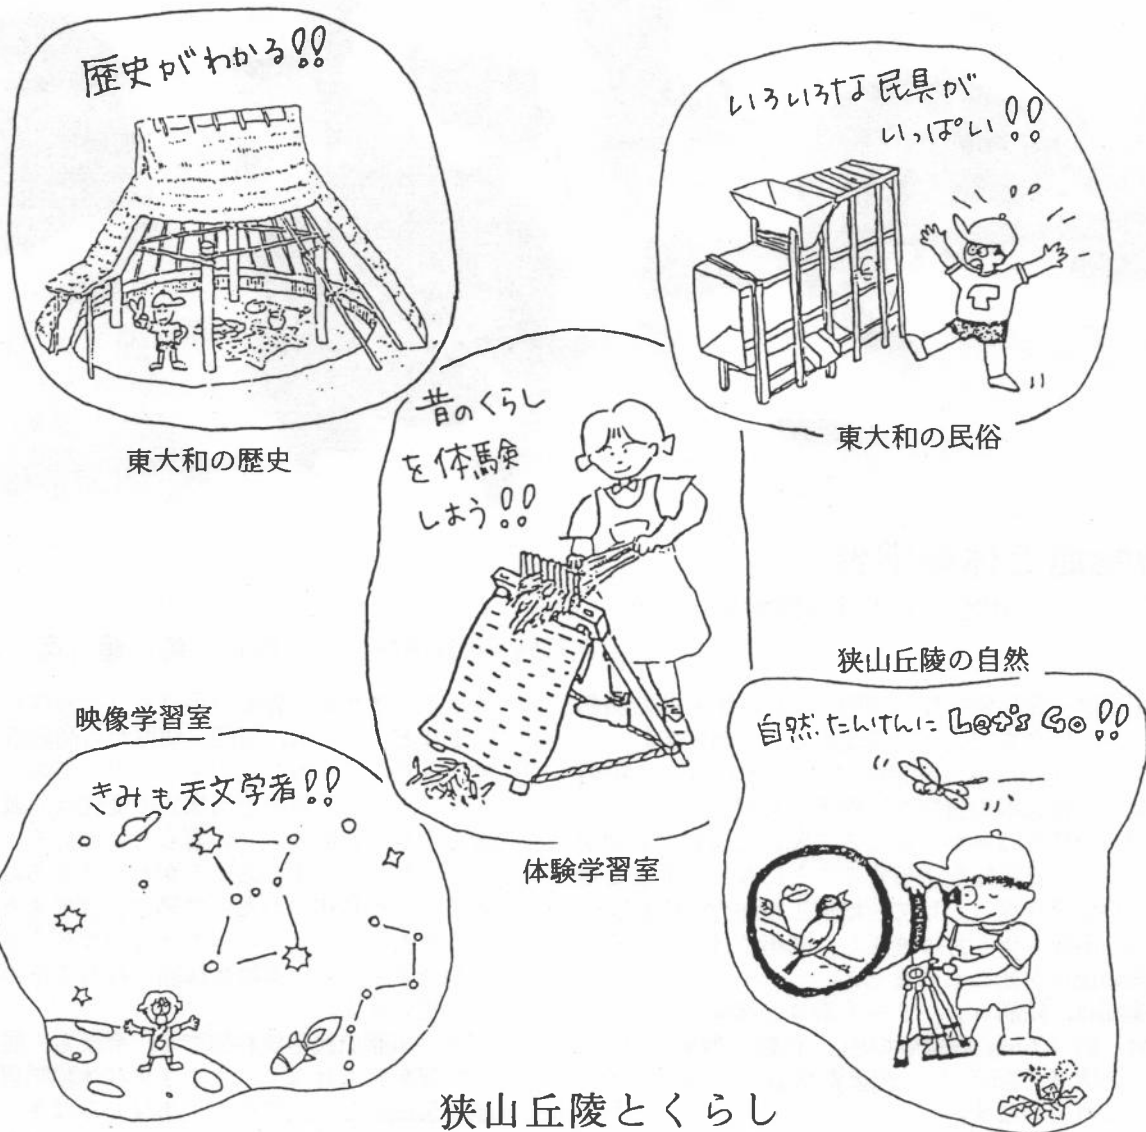 歴史がわかる!!
東大和の歴史
いろいろな民具が
いっぱい!!
T
東大和の民俗
昔のくらし
を体験
しよう!!
体験学習室
映像学習室
きみも天文学者!!
6
狭山丘陵の自然
自然たんけんに Let's Go!!
狭山丘陵とくらし